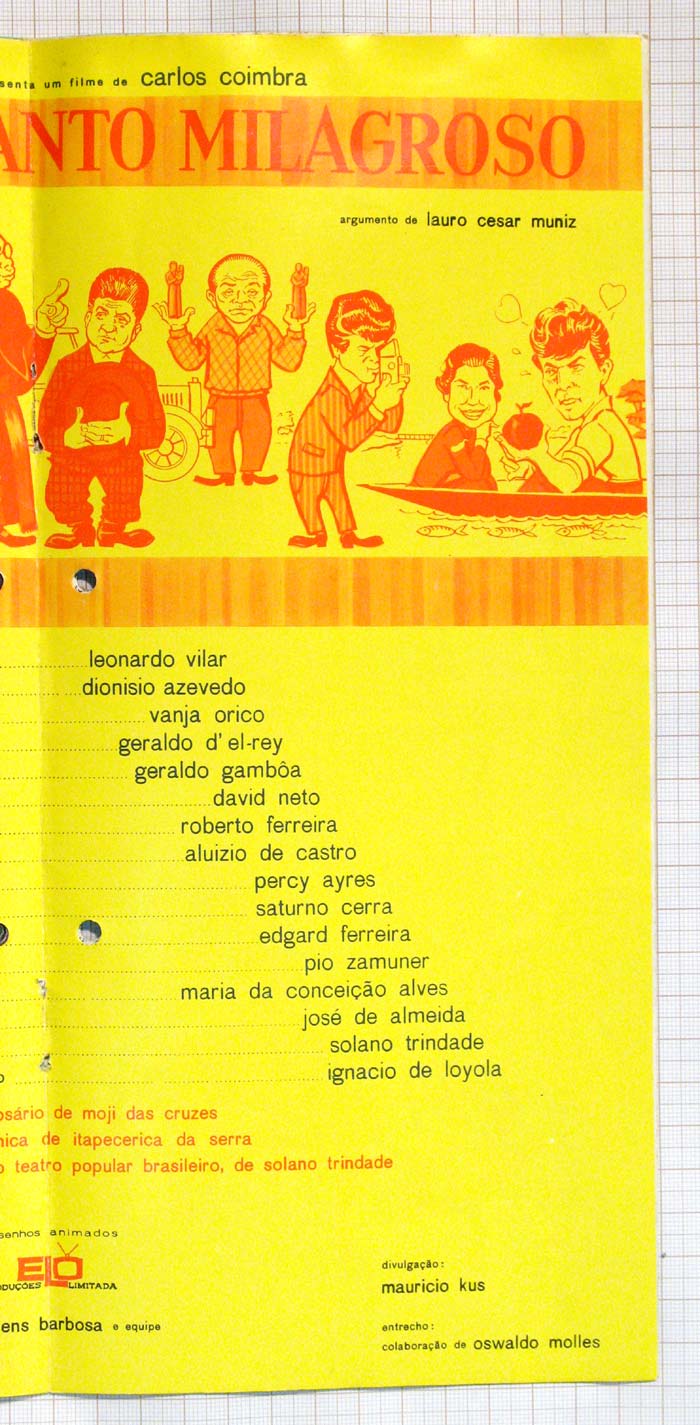 senta um filme de carlos coimbra
ANTO MILAGROSO
argumento de lauro cesar muniz
leonardo vilar
dionisio azevedo
vanja orico
geraldo d' el-rey
geraldo gambôa
david neto
roberto ferreira
aluizio de castro
percy ayres
saturno cerra
edgard ferreira
pio zamuner
maria da conceição alves
josé de almeida
solano trindade
o ignacio de loyola
osário de moji das cruzes
nica de itapecerica da serra
o teatro popular brasileiro, de solano trindade
senhos animados
ELO
ODUÇÕES LIMITADA
ens barbosa e equipe
divulgação:
mauricio kus
entrecho:
colaboração de oswaldo molles